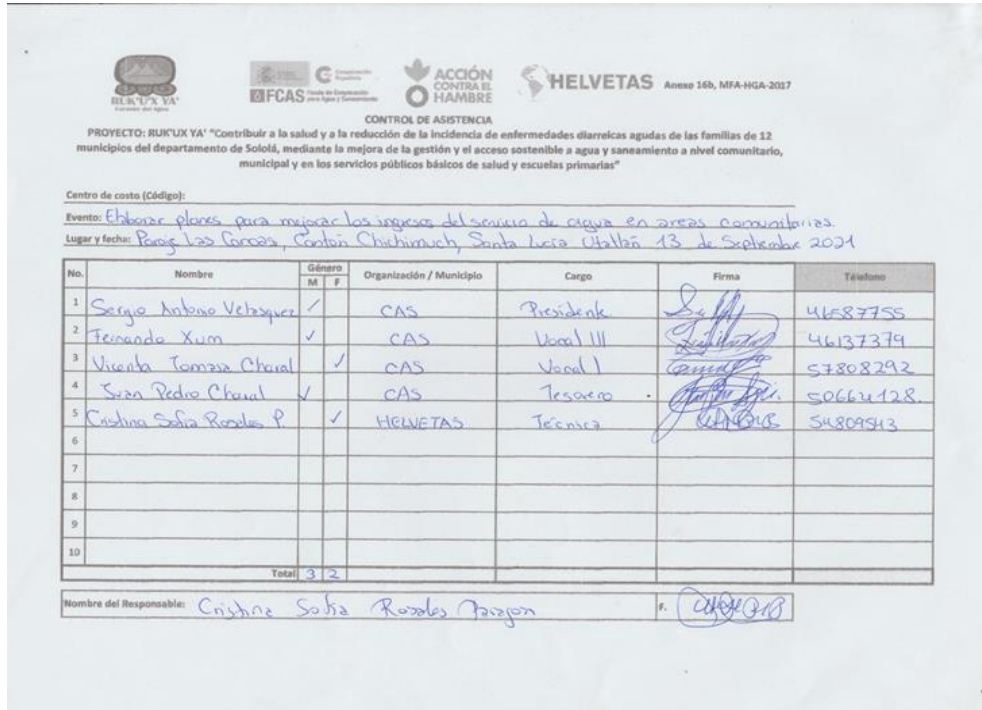 RUK'U'X YA'
Corazón del Agua
Cooperación Española
FCAS Fondo de Cooperación para Agua y Saneamiento
ACCIÓN CONTRA EL HAMBRE
HELVETAS Anexo 16b, MFA-HGA-2017
CONTROL DE ASISTENCIA
PROYECTO: RUK'UX YA' "Contribuir a la salud y a la reducción de la incidencia de enfermedades diarreicas agudas de las familias de 12
municipios del departamento de Sololá, mediante la mejora de la gestión y el acceso sostenible a agua y saneamiento a nivel comunitario,
municipal y en los servicios públicos básicos de salud y escuelas primarias"
Centro de costo (Código):
Evento: Elaborar planes para mejorar los ingresos del servicio de agua en areas comunitarias.
Lugar y fecha: Paraje Las Canoas, Cantón Chichimuch, Santa Lucia Utatlán 13 de Septiembre 2021
No. Nombre Género M F Organización / Municipio Cargo Firma Télefono
1 Sergio Antonio Velasquez / CAS Presidente 46587755
2 Fernando Xum ✓ CAS Vocal III 46137379
3 Vicenta Tomasa Chaval ✓ CAS Vocal I 57808292
4 Juan Pedro Chaval ✓ CAS Tesorero 50664128.
5 Cristina Sofia Rosales P. ✓ HELVETAS Técnica 54809543
6
7
8
9
10
Total 3 2
Nombre del Responsable: Cristina Sofia Rosales Paragon F.